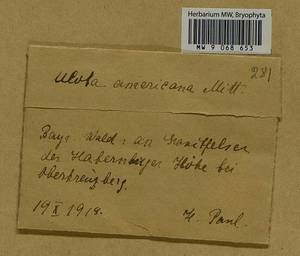 Herbarium MW, Bryophyta
MW 9 068 653
281
Ulota americana Mitt.
Bayr. Wald: an Granitfelsen
der Habernberger Höhe bei
Oberkreuzberg.
19 X 1919. H. Paul.